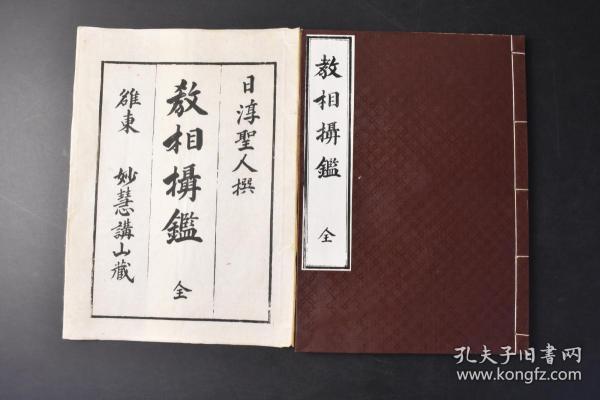 教相摂鑑 全
日淳聖人撰
教相摂鑑 全
雒東 妙慧講山藏
孔夫子旧书网
www.kongfz.com